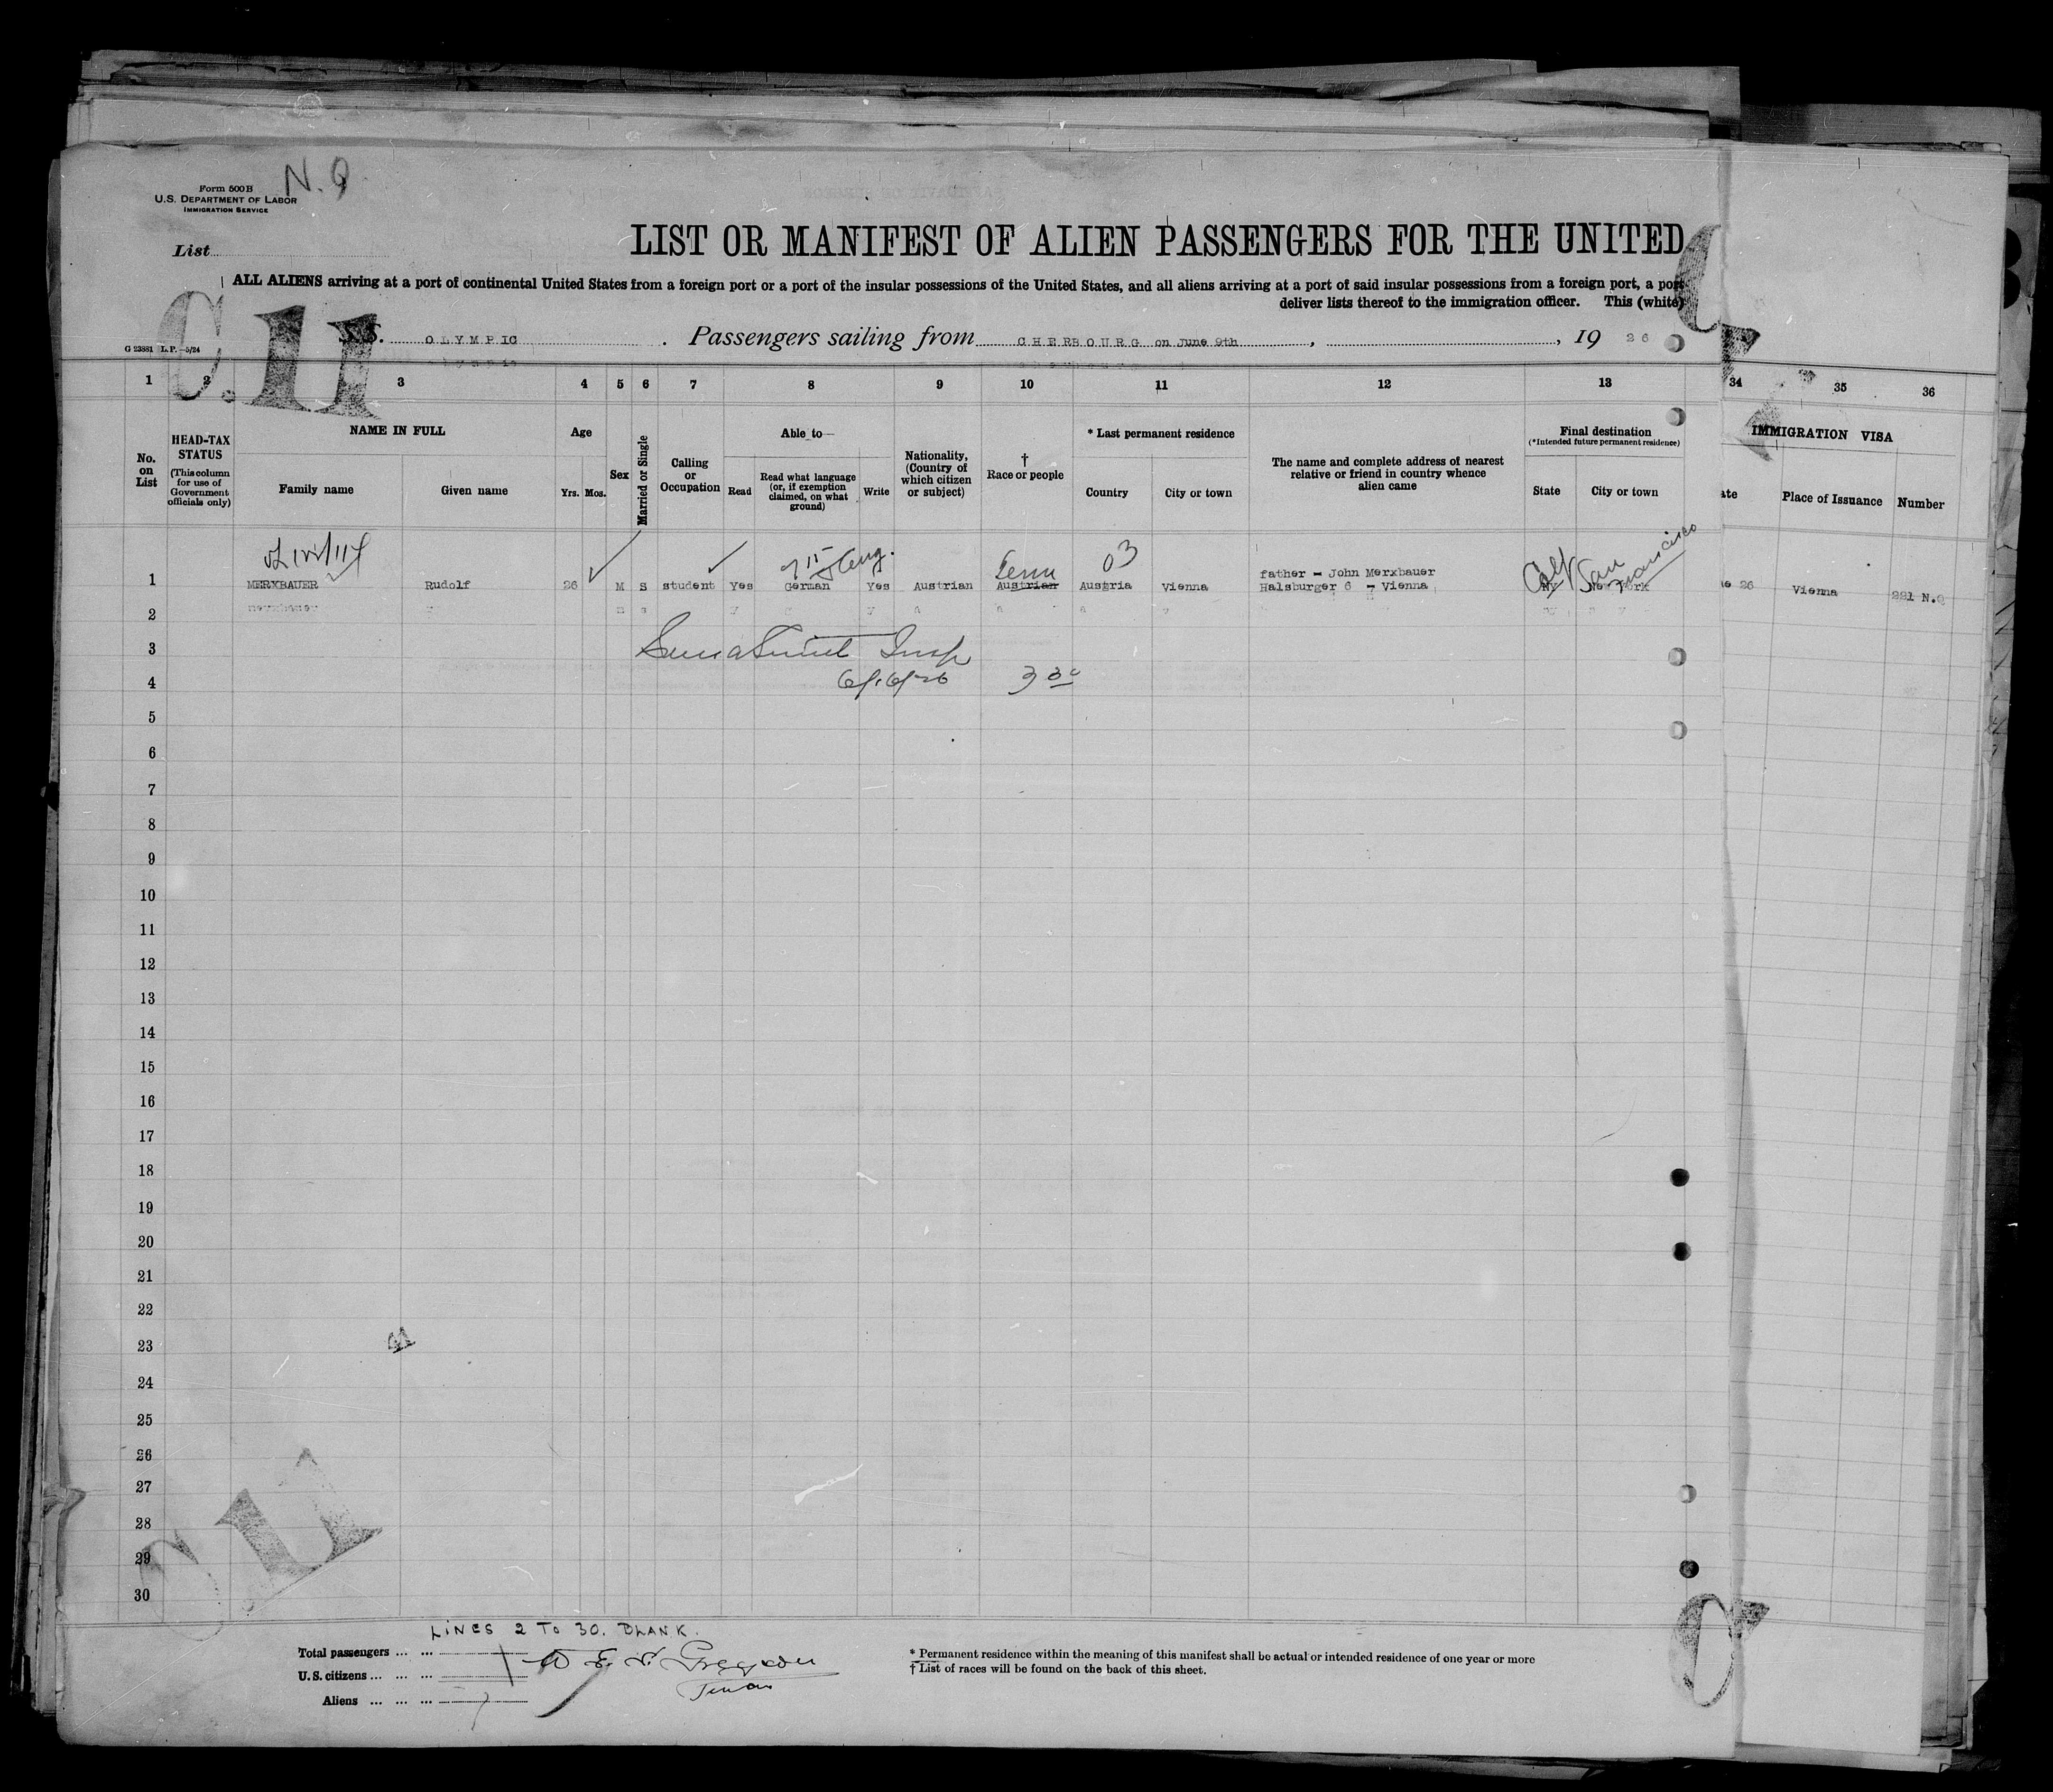 N.Q.
Form 500 B
U.S. DEPARTMENT OF LABOR
IMMIGRATION SERVICE
List
LIST OR MANIFEST OF ALIEN PASSENGERS FOR THE UNITED
ALL ALIENS arriving at a port of continental United States from a foreign port or a port of the insular possessions of the United States, and all aliens arriving at a port of said insular possessions from a foreign port, a port
deliver lists thereof to the immigration officer. This (white)
C.11
S.S. OLYMPIC . Passengers sailing from CHERBOURG on June 9th , , 19 26
G 23881 L.P.—5/24
1 2 3 4 5 6 7 8 9 10 11 12 13 34 35 36
No. on List
HEAD-TAX STATUS
(This column for use of Government officials only)
NAME IN FULL
Family name
Given name
Age
Yrs. Mos.
Sex
Married or Single
Calling or Occupation
Able to—
Read
Read what language (or, if exemption claimed, on what ground)
Write
Nationality, (Country of which citizen or subject)
† Race or people
* Last permanent residence
Country
City or town
The name and complete address of nearest relative or friend in country whence alien came
Final destination
(*Intended future permanent residence)
State
City or town
IMMIGRATION VISA
ate
Place of Issuance
Number
Eng. 03
Calif San Francisco
father - John Merxbauer
1 MERXBAUER Rudolf 26 M S student Yes German Yes Austrian Austrian Austria Vienna Halsburger 6 - Vienna NY New York ne 26 Vienna 221 N.Q
2
3 Insp
4 6/16/26 3 30
5
6
7
8
9
10
11
12
13
14
15
16
17
18
19
20
21
22
23
24
25
26
27
28
29
30
LINES 2 TO 30. BLANK.
Total passengers ... ...
U.S. citizens ... ... ...
Aliens ... ... ...
* Permanent residence within the meaning of this manifest shall be actual or intended residence of one year or more
† List of races will be found on the back of this sheet.